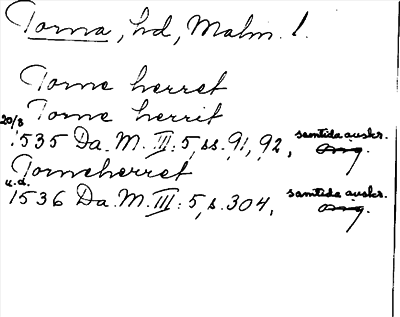 Torna, hd, Malm. l.
Torne herret
Torne herrit
20/8 1535 Da. M. III: 5, ss. 91, 92, samtida avskr.
Torneherret
u.d. 1536 Da. M. III: 5, s. 304, samtida avskr.